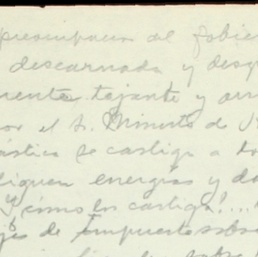 preocupacion del gobie
descarnada y desp
mente tajante y arr
or el Sr. Ministro de H
ástico se castiga a to
liquen energías y do
Y, cómo los castiga!...
de impuesto sobre